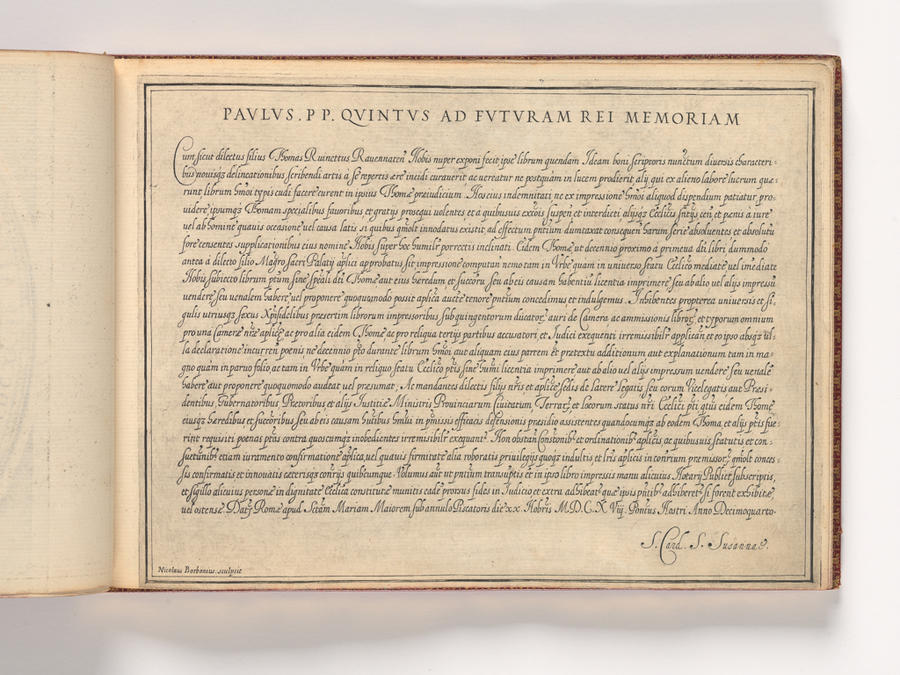 PAVLVS . PP. QVINTVS AD FVTVRAM REI MEMORIAM
Cum sicut dilectus filius Thomas Ruinettus Rauennaten Nobis nuper exponi fecit ipse librum quendam Ideam boni scriptoris diuersis characteri-
bus nouisq delineationibus scribendi artis à se repertis ære incidi curauerit ac uereatur ne postquàm in lucem prodierit alij qui ex alieno labore lucrum quæ-
runt librum hmoi typis cudi facere curent in ipsius Thomæ præiudicium . Nos eius indemnitati ne ex impressione hmoi aliquod dispendium patiatur pro-
uidere ipsumq Thomam specialibus fauoribus et gratijs prosequi uolentes et a quibusuis excois suspen et interdicti alijsq Ecclicis sntijs cen et penis à iure
uel ab homine quauis occasione uel causa latis si quibus qmolt innodatus existit ad effectum pntium dumtaxat consequen harum serie absoluentes et absolutu
fore censentes supplicationibus eius nomine Nobis super hoc humilr porrectis inclinati . Eidem Thomæ ut decennio proximo à primeua dti libri dummodo
antea à dilecto filio Magro Sacri Palatij aplici approbatus sit impressione computan nemo tam in Vrbe quam in uniuerso statu Ecclico mediate uel imediate
Nobis subiecto librum ptum sine speali dti Thomæ aut eius hæredum et succoru seu ab eis causam habentiu licentia imprimere seu ab alio uel alijs impressu
uendere seu uenalem habere uel proponere quoquomodo possit aplica aucte tenore pntium concedimus et indulgemus . Inhibentes propterea uniuersis et si-
gulis utriusq sexus Xpifidelibus presertim librorum impressoribus sub quingentorum ducator auri de Camera ac ammissionis libror et typorum omnium
pro una Cameræ nræ aplicæ ac pro alia eidem Thomæ ac pro reliqua tertijs partibus accusatori et Iudici exequenti irremissibilr applican et eo ipso absq ul-
la declaratione incurren poenis ne decennio pto durante librum hmoi aut aliquam eius partem et prætextu additionum aut explanationum tam in ma-
gno quàm in paruo folio ac tam in Vrbe quàm in reliquo statu Ecclico ptis sine hmoi licentia imprimere aut ab alio uel alijs impressum uendere seu uenale
habere aut proponere quoquomodo audeat uel presumat . Ac mandantes dilectis filijs nris et aplicæ sedis de latere legatis seu eorum Vicelegatis aut Præsi-
dentibus Gubernatoribus Prætoribus et alijs Iustitiæ Ministris Prouinciarum Ciuitatum Terrar et locorum status nri Ecclici pti qtus eidem Thomæ
eiusq hæredibus et successoribus seu ab eis causam hntibus hmoi in pmissis efficacis defensionis presidio assistentes quandocumq ab eodem Thoma et alijs ptis fue-
rint requisiti poenas ptas contra quoscumq inobedientes irremisibilr exequant . Non obstan Constonib et ordinationib aplicis ac quibusuis statutis et con-
suetunib etiam iuramento confirmatione aplica uel quauis firmitate alia roboratis priuilegijs quoq indultis et lris aplicis in contrium premissor qmolt conces-
sis confirmatis et innouatis cæterisq contrijs quibuscumque . Volumus aut ut pntium transuptis et in ipso libro impressis manu alicuius Notarij Publici subscriptis,
et sigillo alicuius personæ in dignitate Ecclica constitutæ munitis eade prorsus fides in Iudicio et extra adhibeat quæ ipsis pntib adhiberet si forent exhibitæ
uel ostensæ . Dat Romæ apud Sctam Mariam Maiorem sub annulo Piscatoris die xx Nobris M.D.C.X Viij . Pontus Nostri Anno Decimoquarto .
S. Card . S . Susannæ .
Nicolaus Borbonius sculpsit